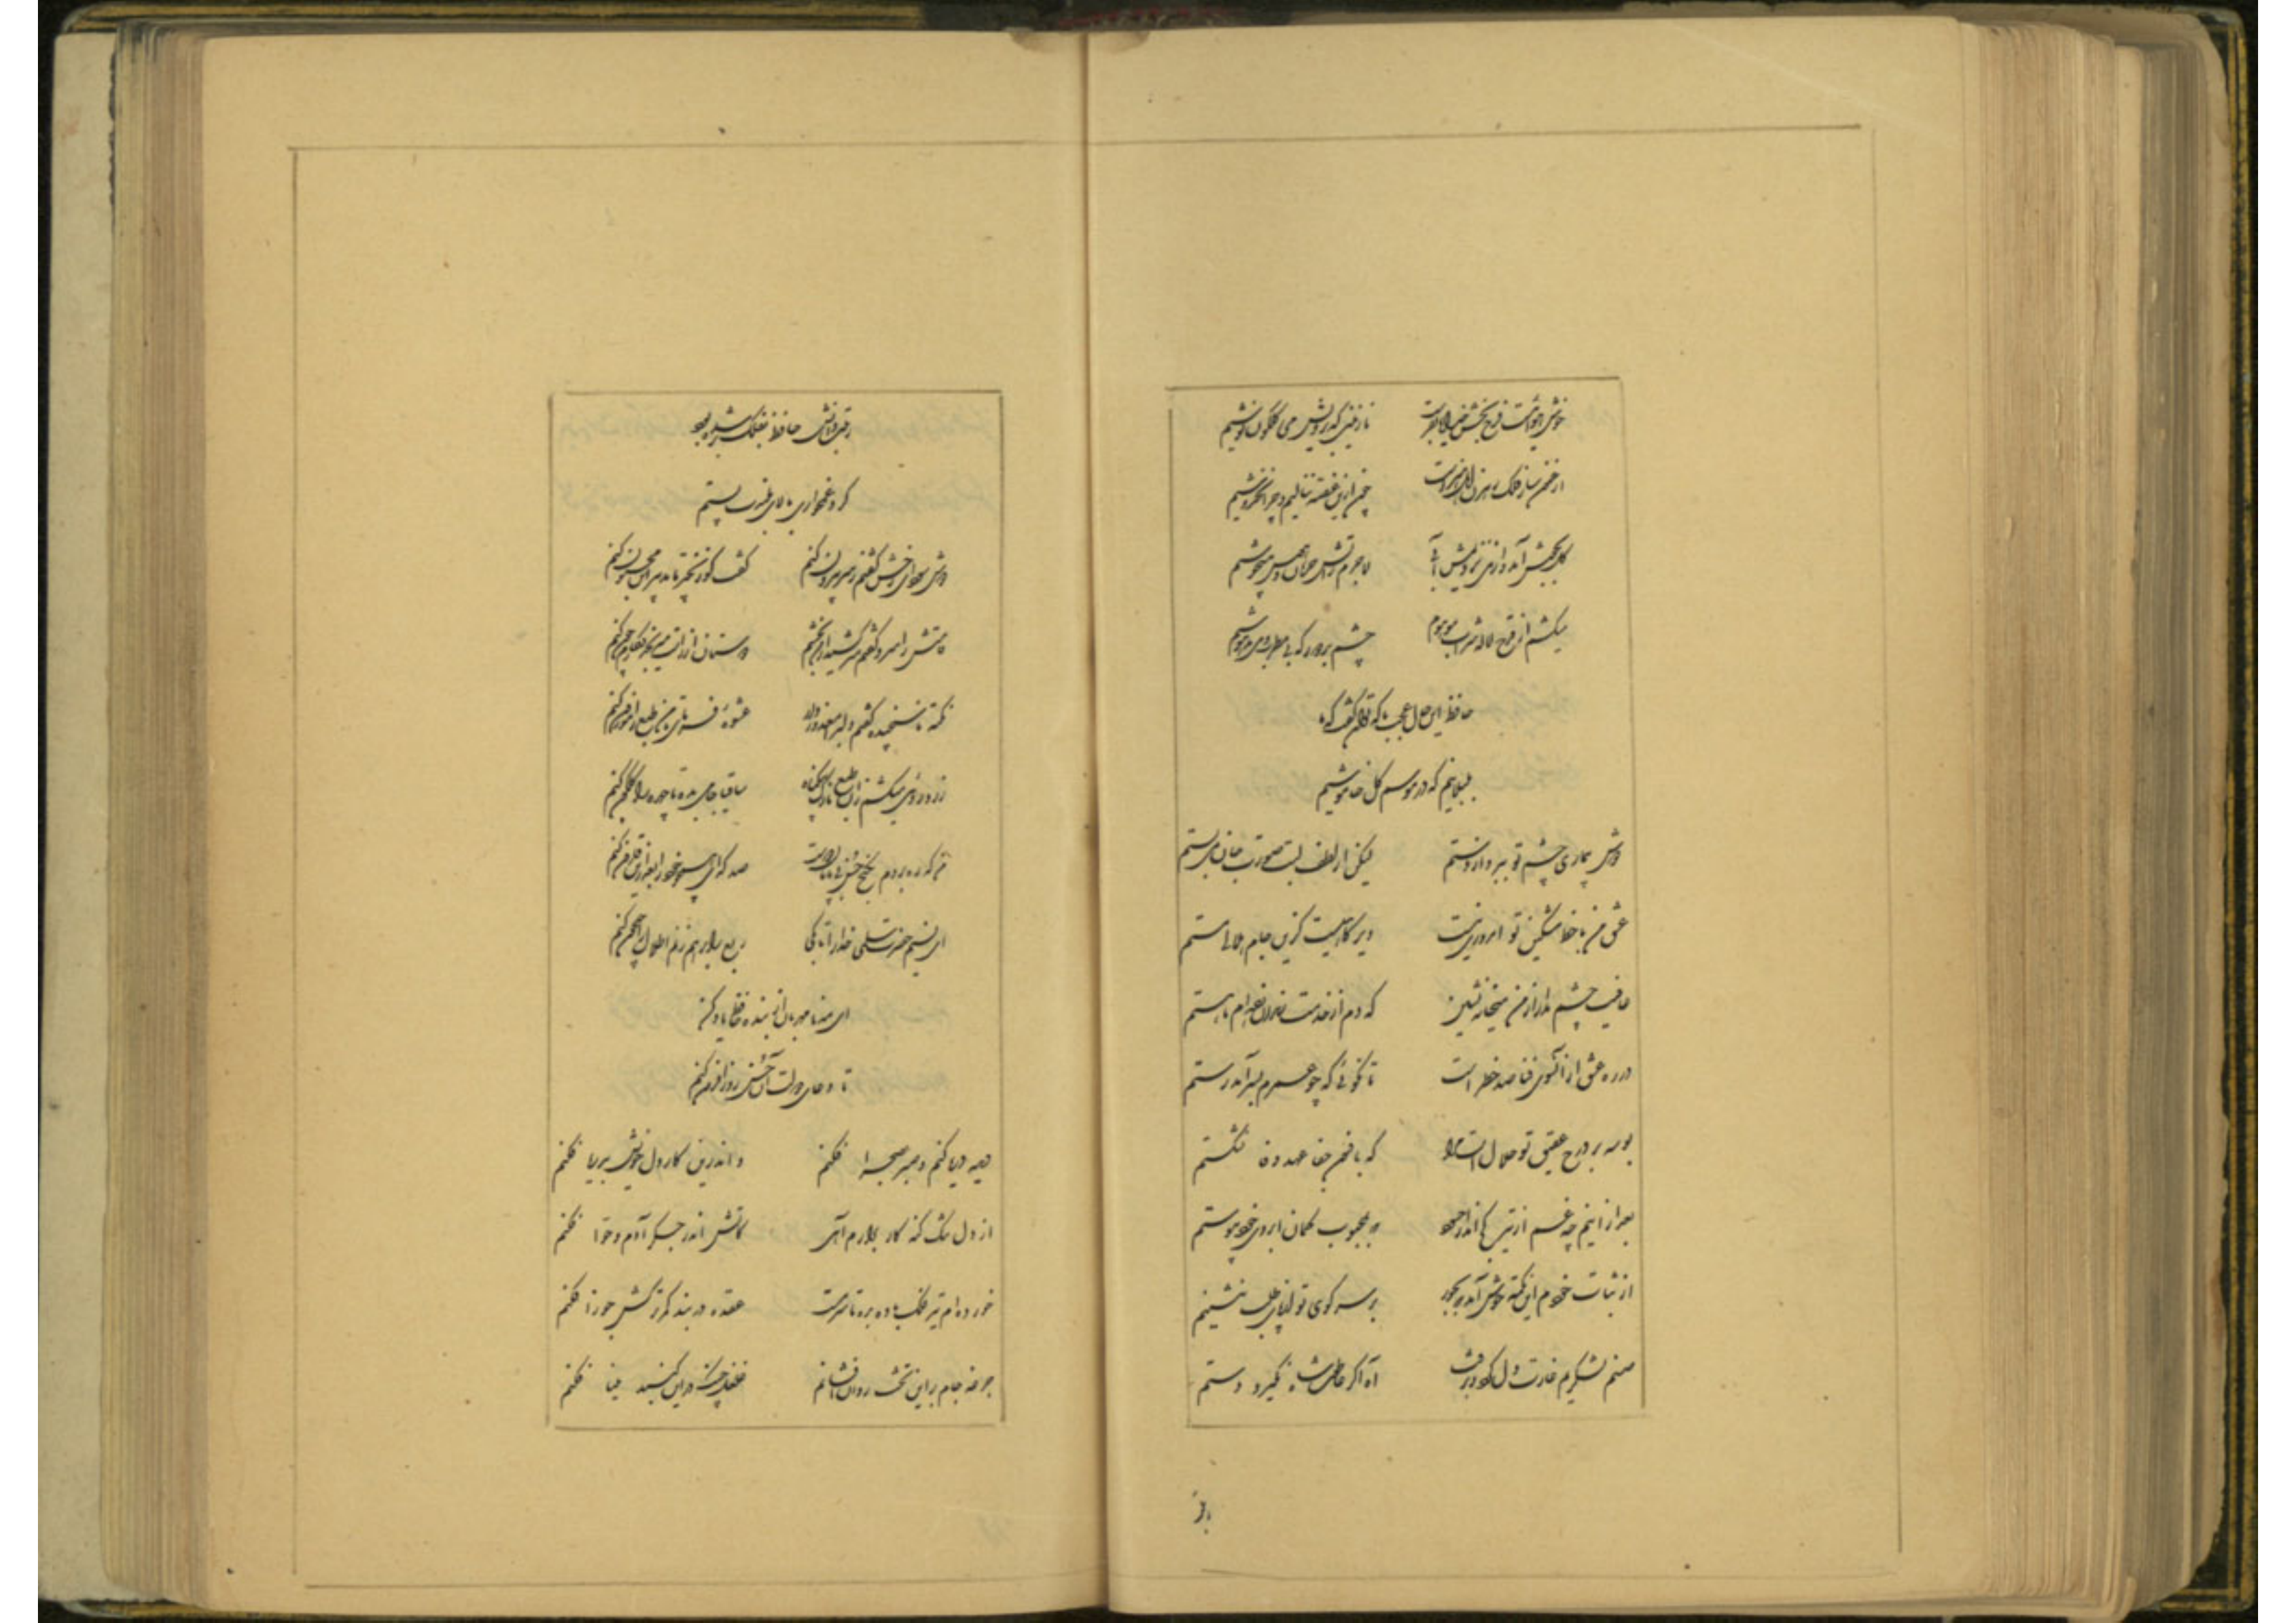 خوش هوائیست فرح بخش خدایا بفرست نازنینی که برویش می گلگون نوشیم
ارغنون ساز فلک رهزن اهل هنرست چون ازین غصه ننالیم و چرا نخروشیم
گل بجوش آمد و از می نزدیمش آبی لاجرم زآتش حرمان و هوس میجوشیم
میکشیم از قدح لاله شراب موهوم چشم بد دور که بی مطرب و می مدهوشیم
حافظ این حال عجب با که توان گفت که ما
بلبلانیم که در موسم گل خاموشیم
دوش بیماری چشم تو ببرد از دستم لیکن از لطف لبت صورت جان می بستم
عشق من با خط مشکین تو امروزی نیست دیرگاهیست کزین جام هلالی مستم
عافیت چشم مدار از من میخانه نشین که دم از خدمت رندان زده ام تا هستم
در ره عشق از آنسوی فنا صد خطر است تا نگوئی که چو عمرم بسر آمد رستم
بوسه بر درج عقیق تو حلال است مرا که بافسوس جفا عهد وفا نشکستم
بعد از اینم چه غم از تیر کج انداز حسود که بمحبوب کمان ابروی خود پیوستم
از ثبات خودم این نکته خوش آمد که بجور بر سر کوی تو از پای طلب ننشینم
صنم لشکریم غارت دل کرد و برفت آه اگر عاطفت شاه نگیرد دستم
رتبت دانش حافظ بفلک بر شده بود
کرد غمخواری بالای بلندت پستم
دوش سودای رخش گفتم ز سر بیرون کنم گفت کو زنجیر تا تدبیر این مجنون کنم
قامتش را سرو گفتم سر کشید از من بخشم دوستان از راست میرنجد نگارم چون کنم
نکته ناسنجیده گفتم دلبرا معذور دار عشوه فرمای تا من طبع را موزون کنم
زرد روئی میکشم زان طبع نازک بیگناه ساقیا جامی بده تا چهره را گلگون کنم
من که ره بردم بگنج حسن بی پایان دوست صد گدای همچو خود را بعد ازین قارون کنم
ای نسیم حضرت سلمی خدا را تا بکی ربع را بر هم زنم اطلال را جیحون کنم
ای مه نامهربان از بنده حافظ یاد کن
تا دعای دولت آن حسن روزافزون کنم
دیده دریا کنم و صبر بصحرا فکنم و اندرین کار دل خویش بدریا فکنم
از دل تنگ گنه کار برآرم آهی کآتش اندر جگر آدم و حوا فکنم
خورده ام تیر فلک باده بده تا سرمست عقده در بند کمر ترکش جوزا فکنم
جرعه جام براین تخت روان افشانم غلغل چنگ در این گنبد مینا فکنم